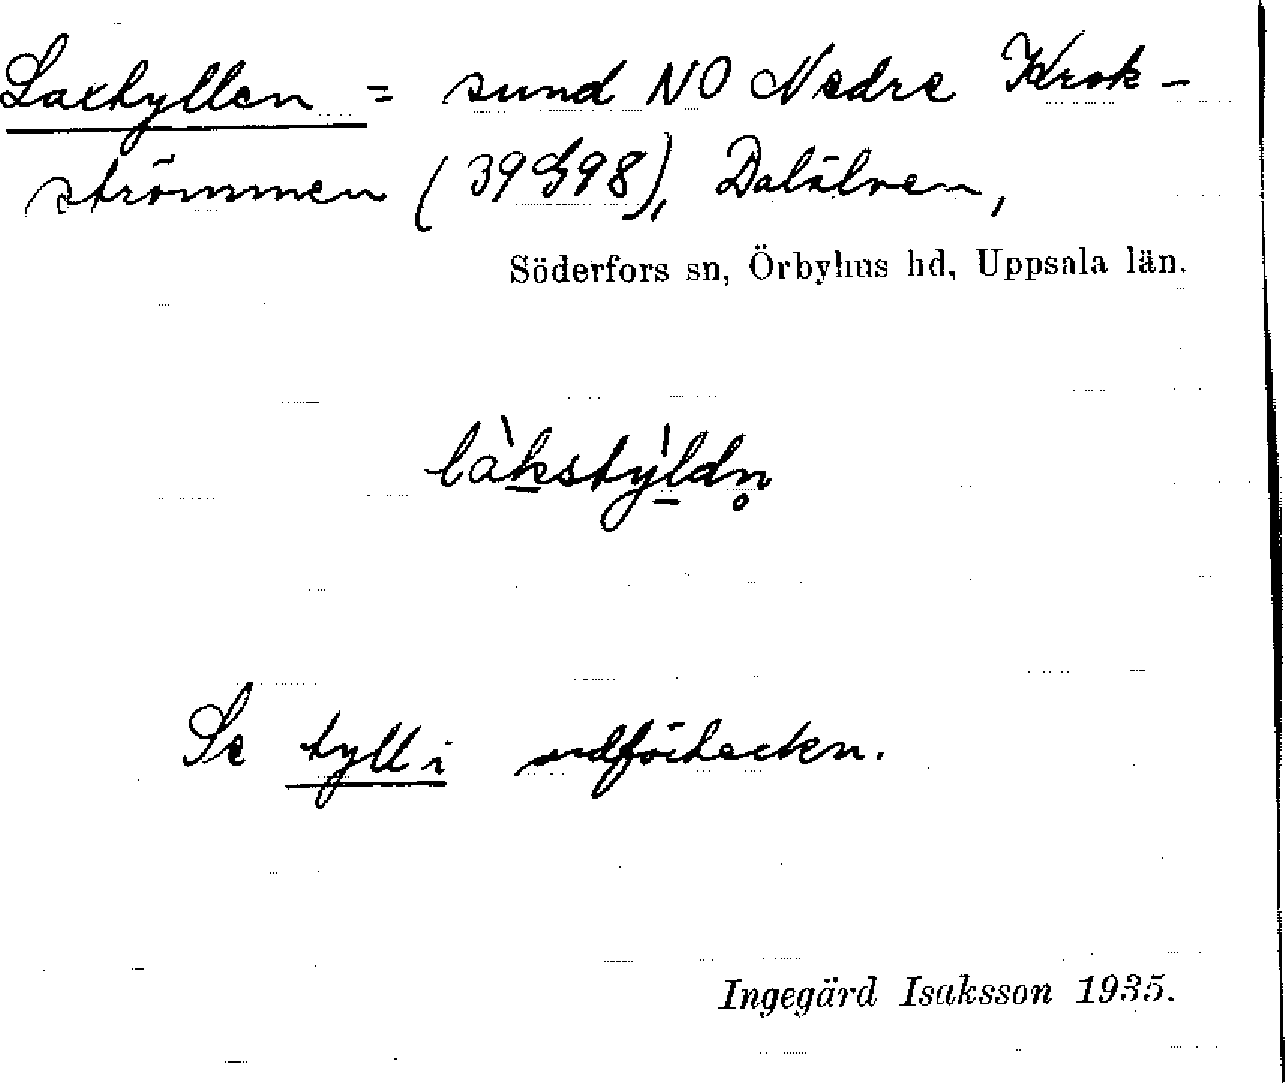 Laxtyllen = sund NO Nedre Krok-
strömmen (39 G98), Dalälven,
Söderfors sn, Örbyhus hd, Uppsala län.
làkstỳldn̥
Se tyll i ordförteckn.
Ingegärd Isaksson 1935.